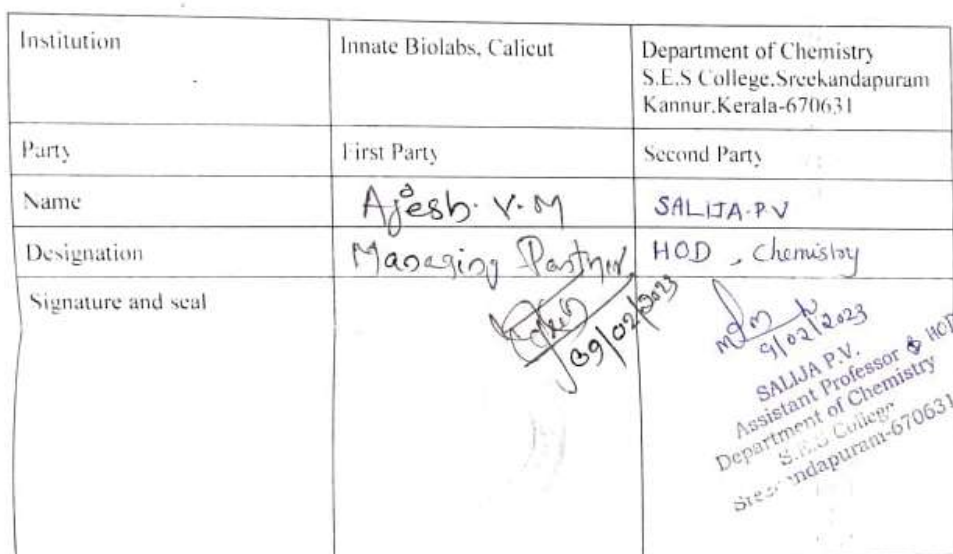 Institution
Innate Biolabs, Calicut
Department of Chemistry
S.E.S College.Sreekandapuram
Kannur.Kerala-670631
Party
First Party
Second Party
Name
Ajesh. V. M
SALIJA.P.V
Designation
Managing Partner
HOD, Chemistry
Signature and seal
09/02/2023
9/02/2023
SALIJA P.V.
Assistant Professor & HOD
Department of Chemistry
S.E.S College
Sreekandapuram-670631